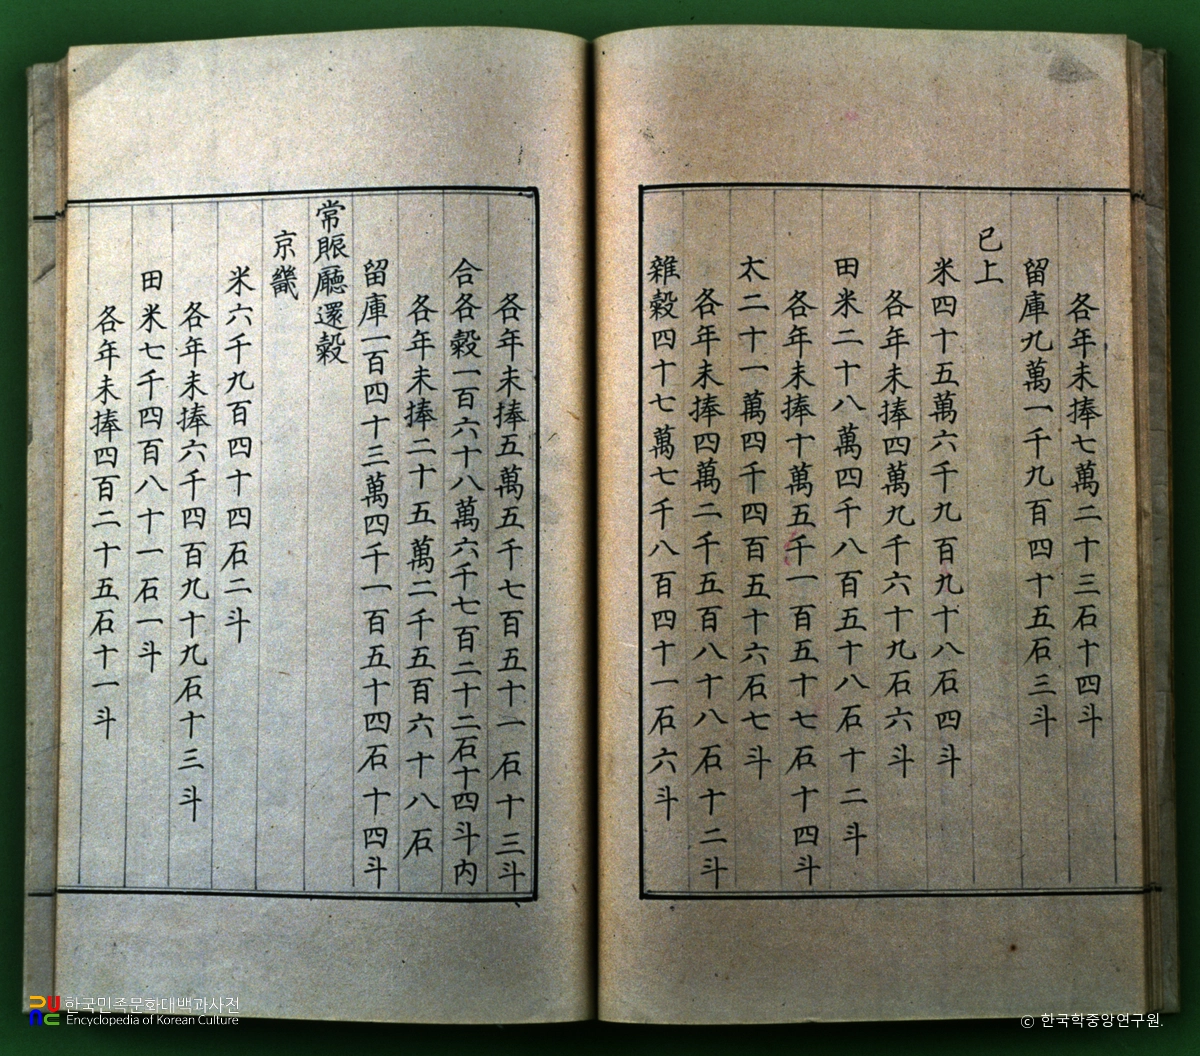 各年未捧七萬二十三石十四斗
留庫九萬一千九百四十五石三斗
已上
米四十五萬六千九百九十八石四斗
各年未捧四萬九千六十九石六斗
田米二十八萬四千八百五十八石十二斗
各年未捧十萬五千一百五十七石十四斗
太二十一萬四千四百五十六石七斗
各年未捧四萬二千五百八十八石十二斗
雜穀四十七萬七千八百四十一石六斗
各年未捧五萬五千七百五十一石十三斗
合各穀一百六十八萬六千七百二十二石十四斗內
各年未捧二十五萬二千五百六十八石
留庫一百四十三萬四千一百五十四石十四斗
常賑廳還穀
京畿
米六千九百四十四石二斗
各年未捧六千四百九十九石十三斗
田米七千四百八十一石一斗
各年未捧四百二十五石十一斗
한국민족문화대백과사전
Encyclopedia of Korean Culture
© 한국학중앙연구원.